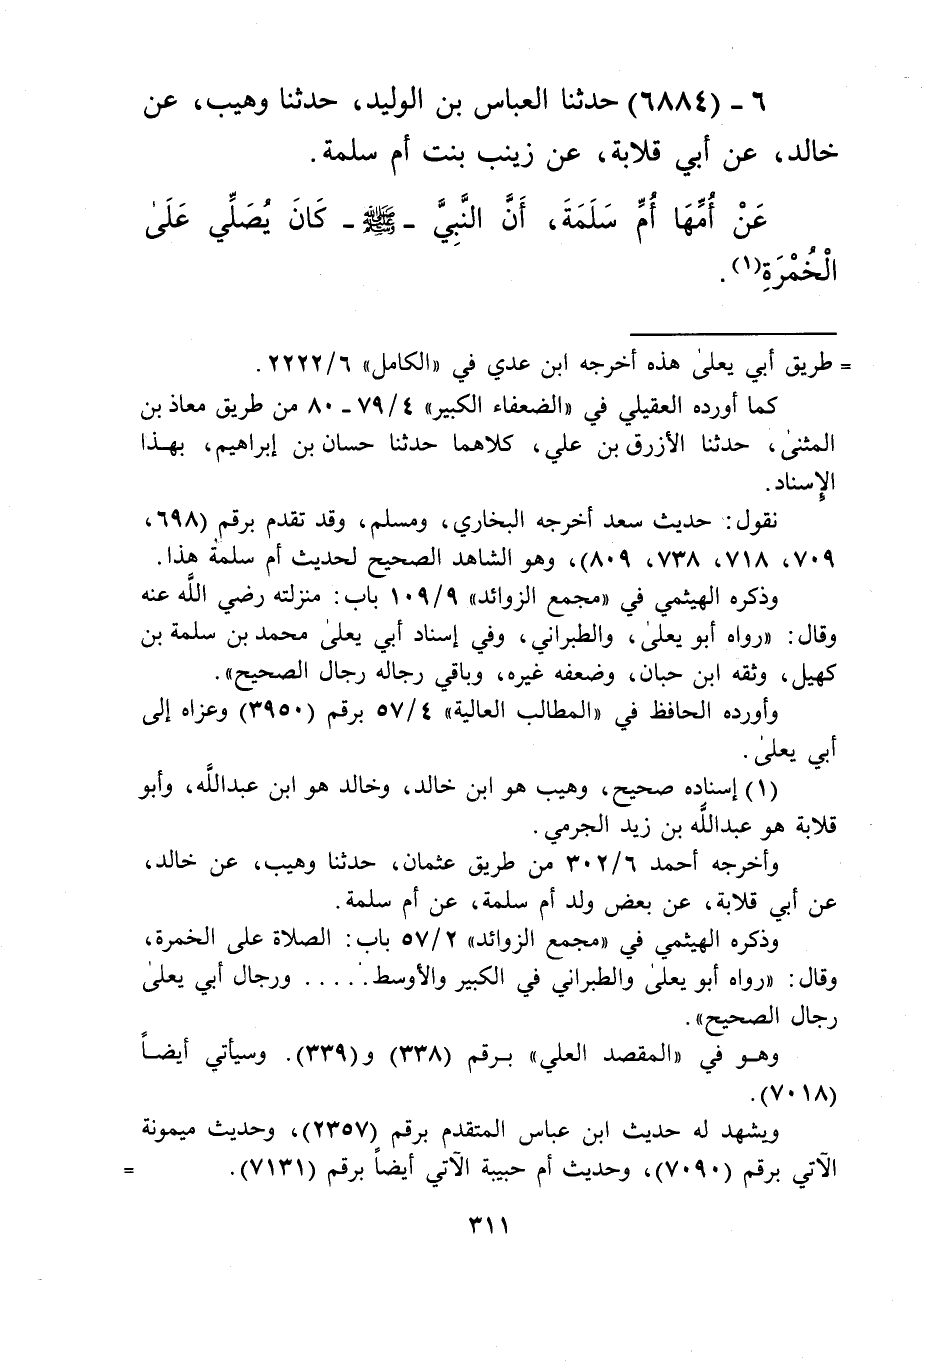 ٦ - (٦٨٨٤) حدثنا العباس بن الوليد، حدثنا وهيب، عن
خالد، عن أبي قلابة، عن زينب بنت أم سلمة.
عَنْ أُمِّهَا أُمِّ سَلَمَةَ، أَنَّ النَّبِيَّ - ﷺ - كَانَ يُصَلِّي عَلَىٰ
الْخُمْرَةِ(١).
= طريق أبي يعلىٰ هذه أخرجه ابن عدي في «الكامل» ٦/٢٢٢٢.
كما أورده العقيلي في «الضعفاء الكبير» ٤/٧٩ - ٨٠ من طريق معاذ بن
المثنىٰ، حدثنا الأزرق بن علي، كلاهما حدثنا حسان بن إبراهيم، بهذا
الإسناد.
نقول: حديث سعد أخرجه البخاري، ومسلم، وقد تقدم برقم (٦٩٨،
٧٠٩، ٧١٨، ٧٣٨، ٨٠٩)، وهو الشاهد الصحيح لحديث أم سلمة هذا.
وذكره الهيثمي في «مجمع الزوائد» ٩/١٠٩ باب: منزلته رضي اللَّه عنه
وقال: «رواه أبو يعلىٰ، والطبراني، وفي إسناد أبي يعلىٰ محمد بن سلمة بن
كهيل، وثقه ابن حبان، وضعفه غيره، وباقي رجاله رجال الصحيح».
وأورده الحافظ في «المطالب العالية» ٤/٥٧ برقم (٣٩٥٠) وعزاه إلى
أبي يعلىٰ.
(١) إسناده صحيح، وهيب هو ابن خالد، وخالد هو ابن عبداللَّه، وأبو
قلابة هو عبداللَّه بن زيد الجرمي.
وأخرجه أحمد ٦/٣٠٢ من طريق عثمان، حدثنا وهيب، عن خالد،
عن أبي قلابة، عن بعض ولد أم سلمة، عن أم سلمة.
وذكره الهيثمي في «مجمع الزوائد» ٢/٥٧ باب: الصلاة على الخمرة،
وقال: «رواه أبو يعلىٰ والطبراني في الكبير والأوسط. . . . . ورجال أبي يعلىٰ
رجال الصحيح».
وهو في «المقصد العلي» برقم (٣٣٨) و(٣٣٩). وسيأتي أيضاً
(٧٠١٨).
ويشهد له حديث ابن عباس المتقدم برقم (٢٣٥٧)، وحديث ميمونة
الآتي برقم (٧٠٩٠)، وحديث أم حبيبة الآتي أيضاً برقم (٧١٣١). =
٣١١